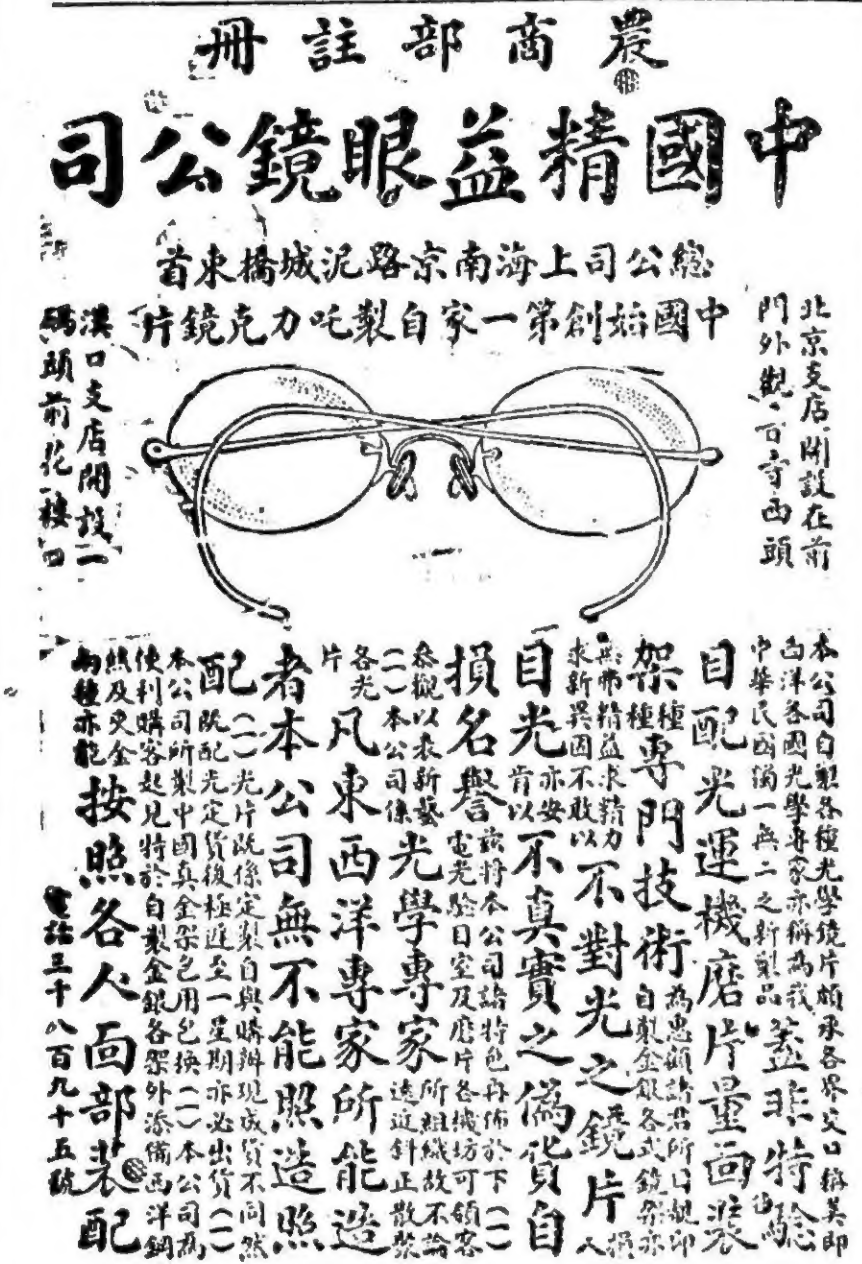 農商部註冊
中國精益眼鏡公司
總公司上海南京路泥城橋東首
中國始創第一家自製吒力克鏡片
北京支店開設在前
門外觀音寺西頭
漢口支店開設一
碼頭前花樓口
本公司自製各種光學鏡片頗承各界交口稱美即
西洋各國光學專家亦稱為我
中華民國獨一無二之新製品
蓋非特驗
目配光運機磨片量面裝
架種種專門技術為惠顧諸君所口親即
自製金銀各式鏡架亦
無弗精益求精力
求新異因不敢以
不對光之鏡片損人
目光亦安肯以不真實之偽貨自
損名譽茲將本公司諸特色再佈於下(一)
電光驗目室及磨片各機坊可領客
參觀以表新藝
(一)本公司係光學專家所組織故不論
遠近斜正散聚
各光片凡東西洋專家所能造
者本公司無不能照造照
配(一)光片既係定製自與購辦現成貨不同然
既配光定貨後極遲至一星期亦必出貨(一)
本公司所製中國真金架包用包換(一)本公司為
便利購客起見特於自製金銀各架外添備西洋鋼
絲及更金
兩種亦能按照各人面部裝配
電話三千八百九十五號